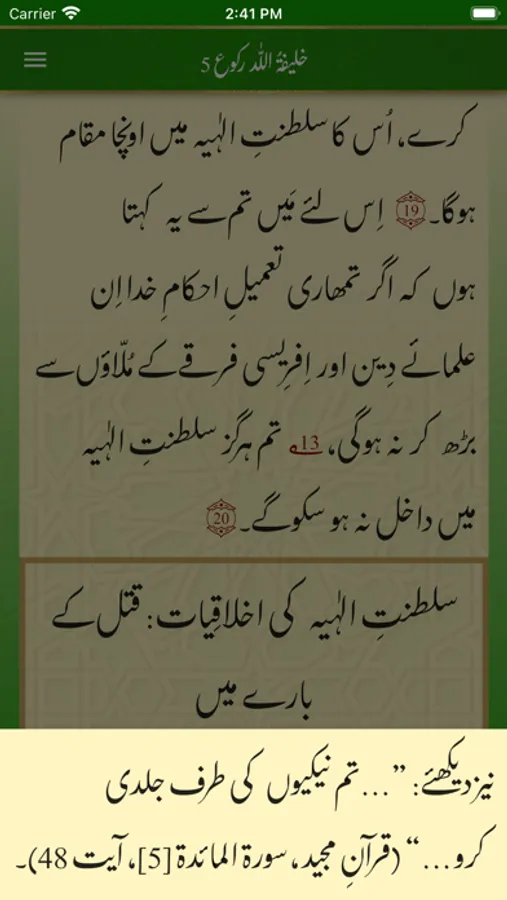 Carrier 2:41 PM
خلیفۃُ اللہ رکوع 5
کرے، اُس کا سلطنتِ الہٰیہ میں اونچا مقام
ہوگا۔ 19 اِس لئے مَیں تم سے یہ کہتا
ہوں کہ اگر تمھاری تعمیلِ احکامِ خدا اِن
علمائے دِین اور اِفرِیسی فرقے کے مُلّاؤں سے
بڑھ کر نہ ہوگی، 13؎ تم ہرگز سلطنتِ الہٰیہ
میں داخل نہ ہو سکوگے۔ 20
سلطنتِ الہٰیہ کی اخلاقِیات: قتل کے
بارے میں
نیز دیکھئے: ”...تم نیکیوں کی طرف جلدی
کرو...“ (قرآنِ مجید، سورۃ المائدۃ [5]، آیت 48)۔